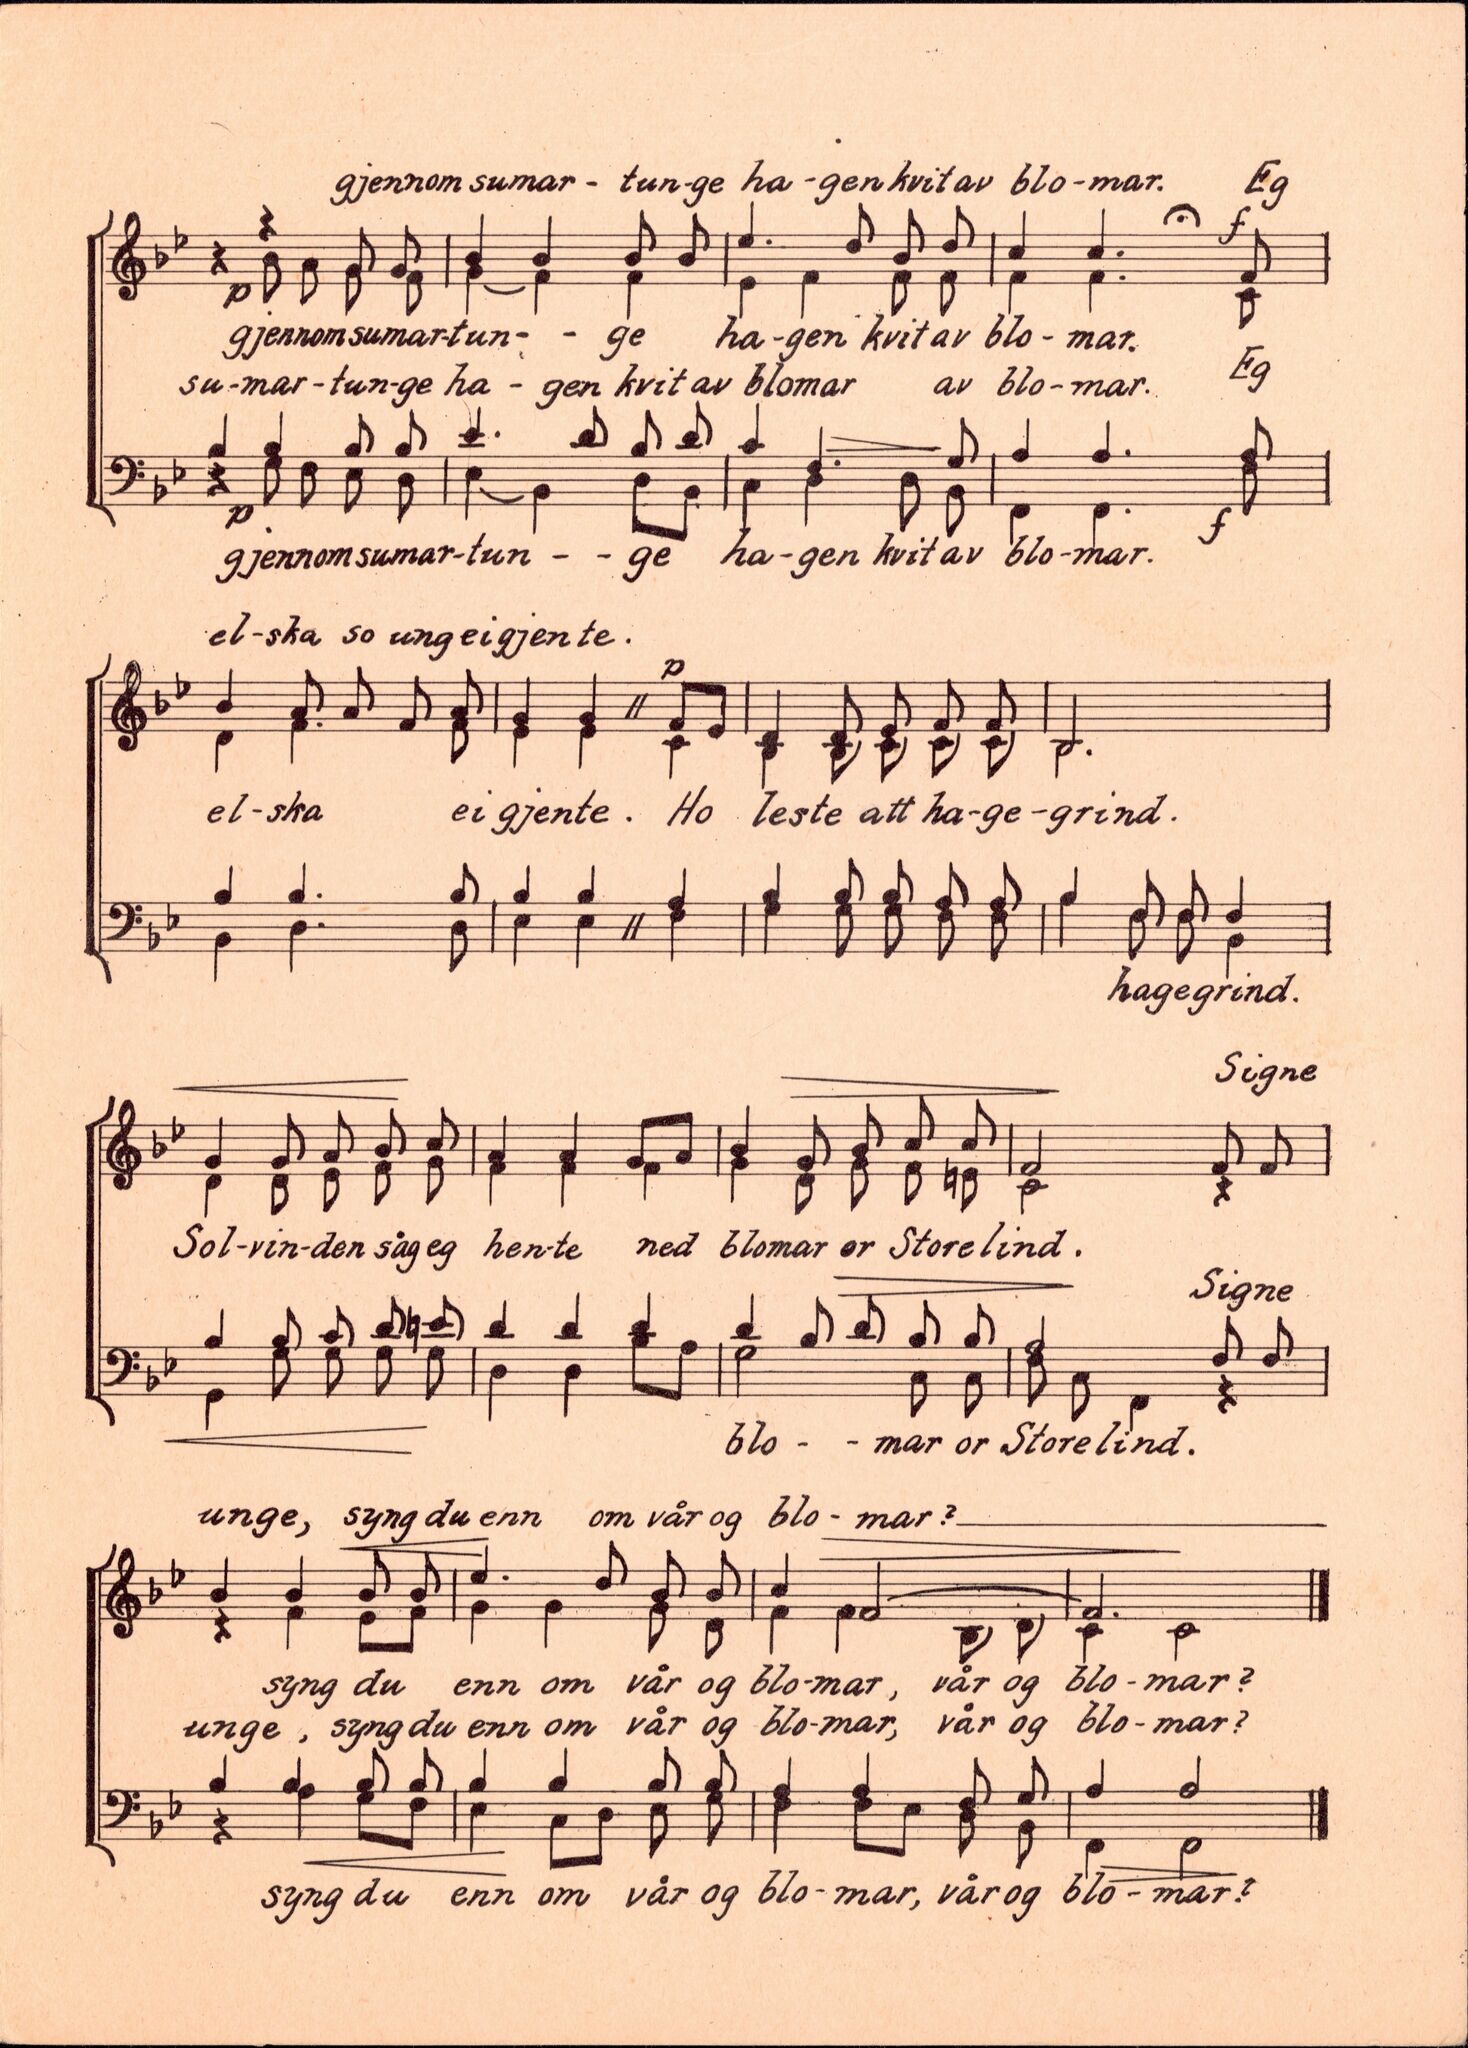 gjennom sumar - tun-ge ha - gen kvit av blo - mar. Eg
f
p
gjennom sumar-tun - - ge ha - gen kvit av blo - mar.
su - mar - tun-ge ha - gen kvit av blomar av blo - mar. Eg
p f
gjennom sumar-tun - - ge ha - gen kvit av blo - mar.
el - ska so ung ei gjente.
p
el - ska ei gjente. Ho leste att ha-ge-grind.
hagegrind.
Signe
Sol-vin-den såg eg hen-te ned blomar or Storelind.
Signe
blo - - mar or Storelind.
unge, syng du enn om vår og blo - mar?
syng du enn om vår og blo-mar, vår og blo - mar?
unge, syng du enn om vår og blo-mar, vår og blo - mar?
syng du enn om vår og blo - mar, vår og blo - mar?